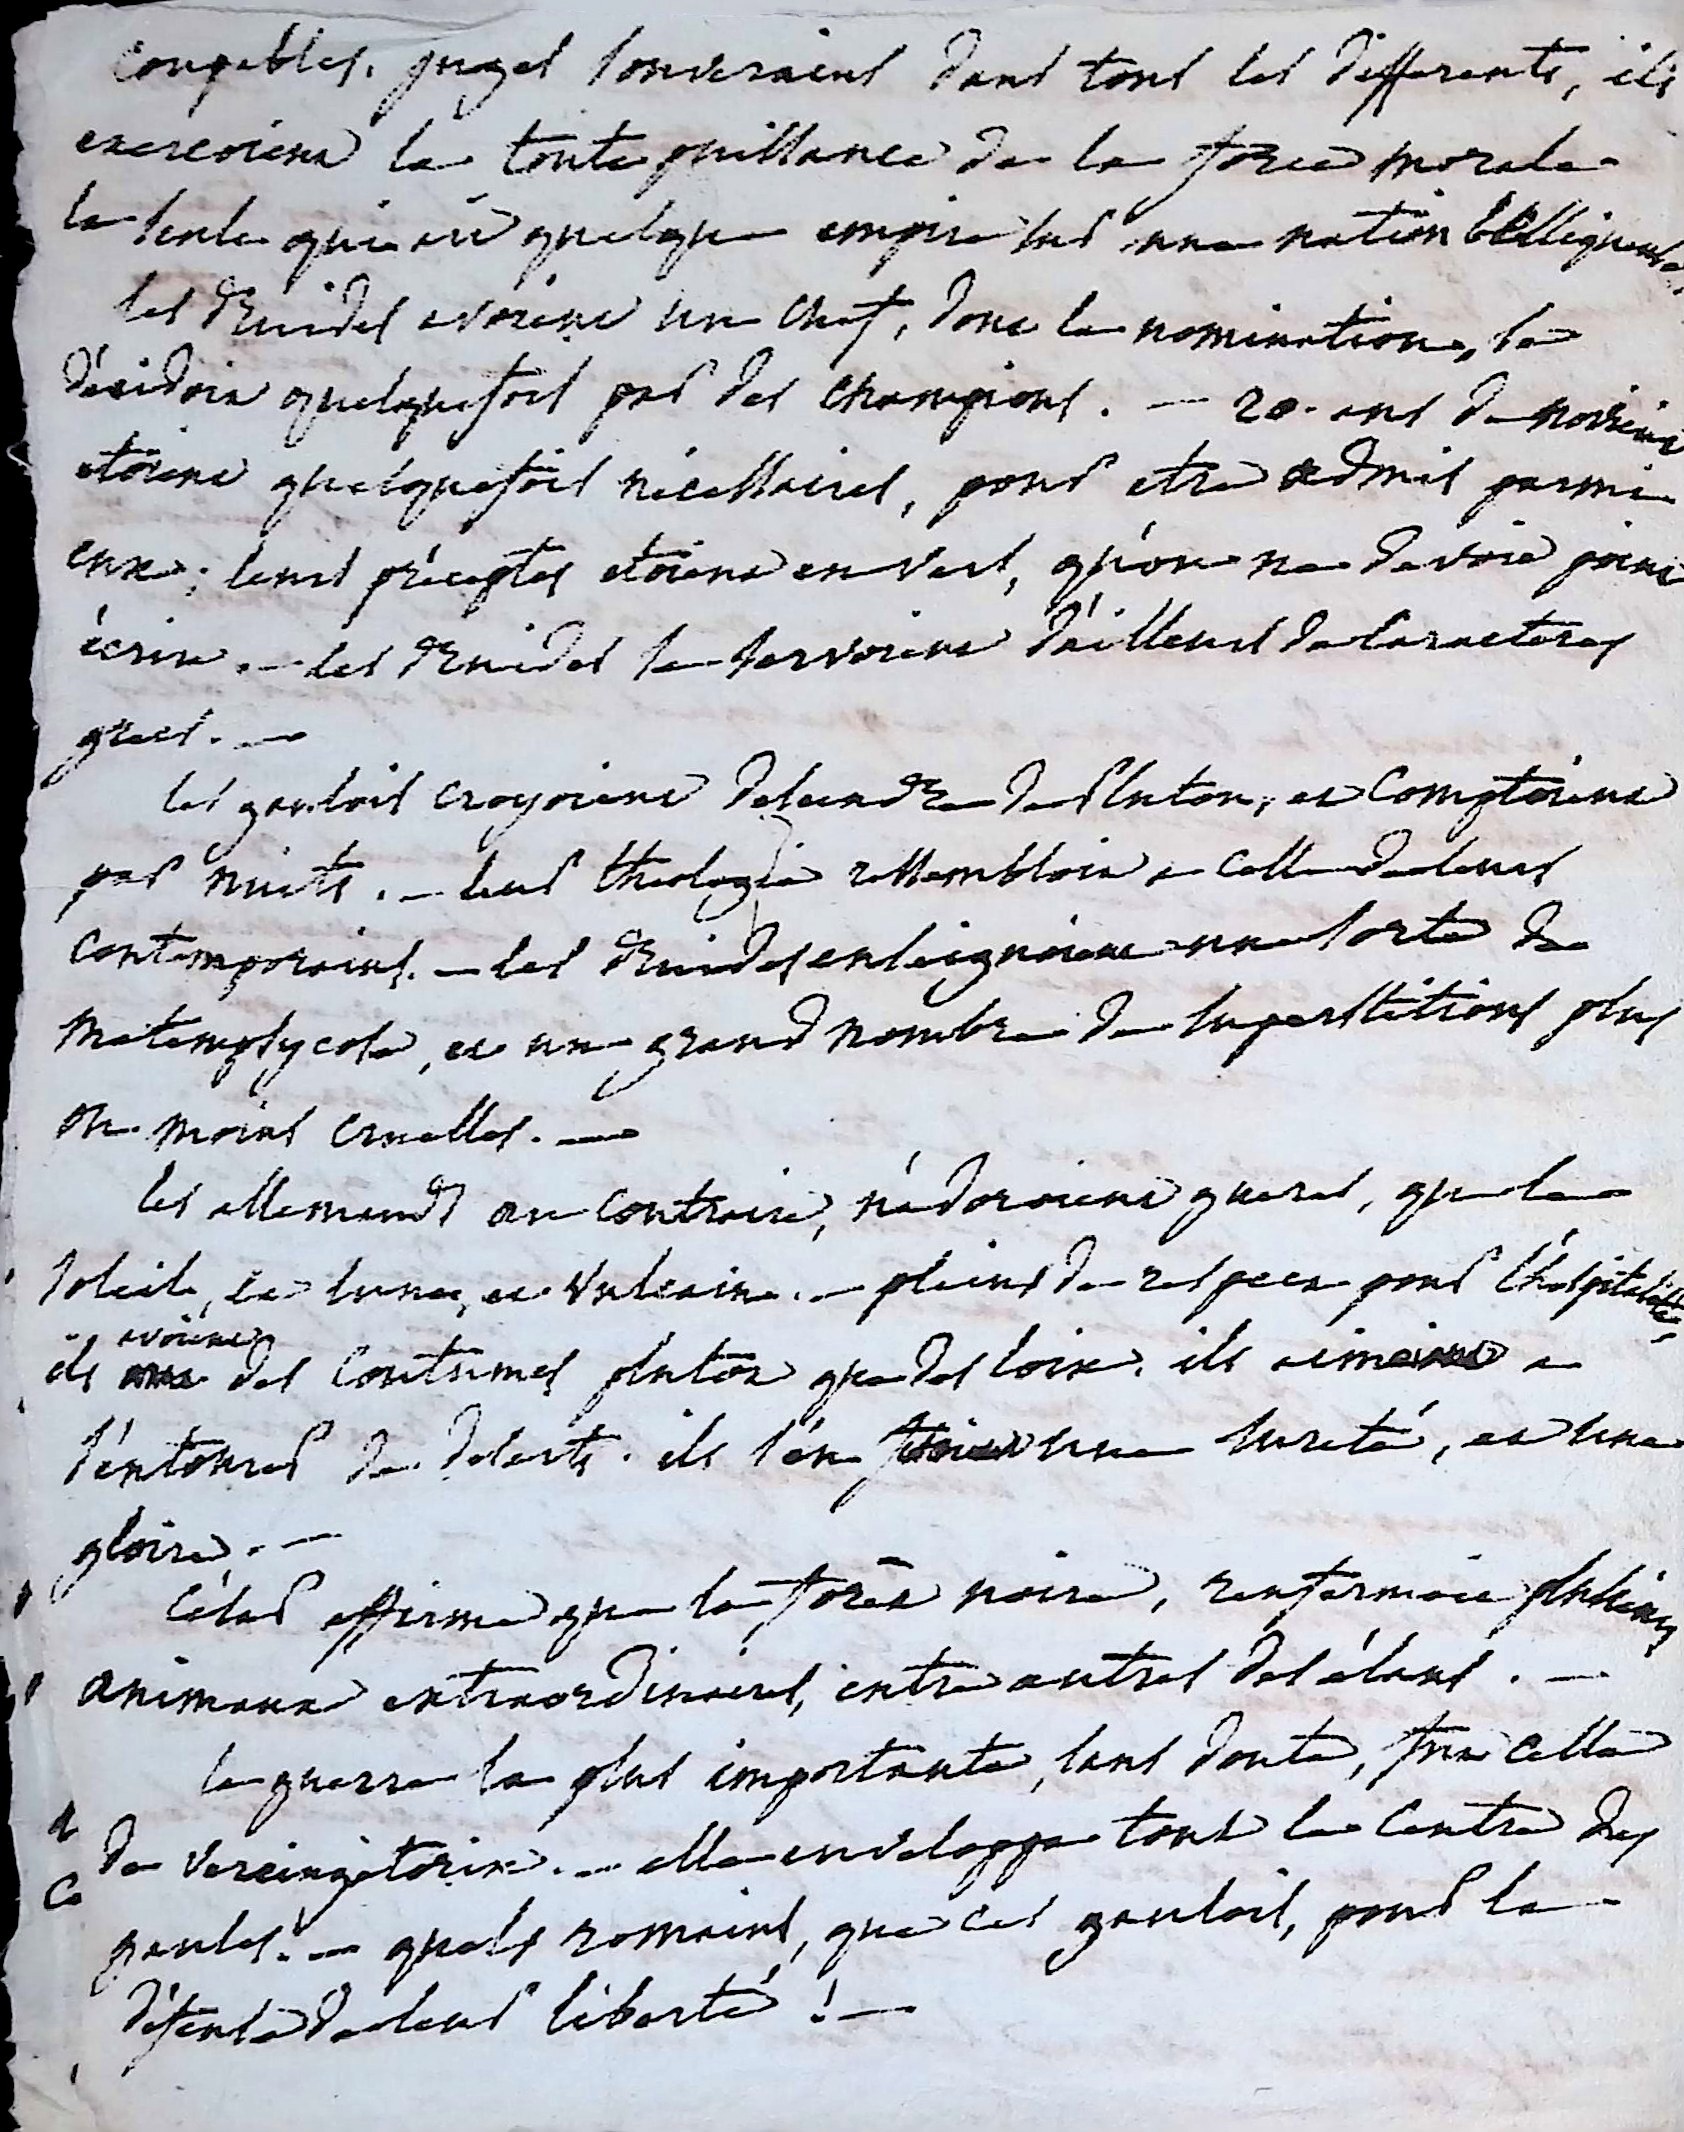 coupables. juges souverains dans tous les differents, ils
exercoient la toute puissance de la force morale
la seule qui ait quelque empire sur une nation belliqueuse.
les druides avoient un chef, dont la nomination, se
décidoit quelquefois par des champions. — 20. ans de noviciat
etoient quelquefois nécessaires, pour etre admis parmi
eux ; leurs préceptes etoient en vers, qu'on ne devoit point
écrire. — les druides se servoient d'ailleurs de caracteres
grecs. —
les gaulois croyoient descendre de Pluton, et comptoient
par nuits. — leur théologie ressembloit a celle de leurs
contemporains. — les druides enseignoient une sorte de
metempsycose, et un grand nombre de superstitions plus
ou moins cruelles. —
les allemands au contraire, n'adoroient gueres, que le
soleil, la lune, et Vulcain. — pleins de respect pour l'hospitalité,
ils avoient des coutumes plutot que des loix. ils aimoient a
s'entourer de deserts. ils s'en faisoient une sureté, et une
gloire. —
César affirme que la forêt noire, renfermoit plusieurs
animaux extraordinaires, entre autres des élans. —
la guerre la plus importante, sans doute, fut celle
de vercingétorix. — elle enveloppe tout le centre des
gaules. — quels romains, que ces gaulois, pour la
défense de leur liberté ! —